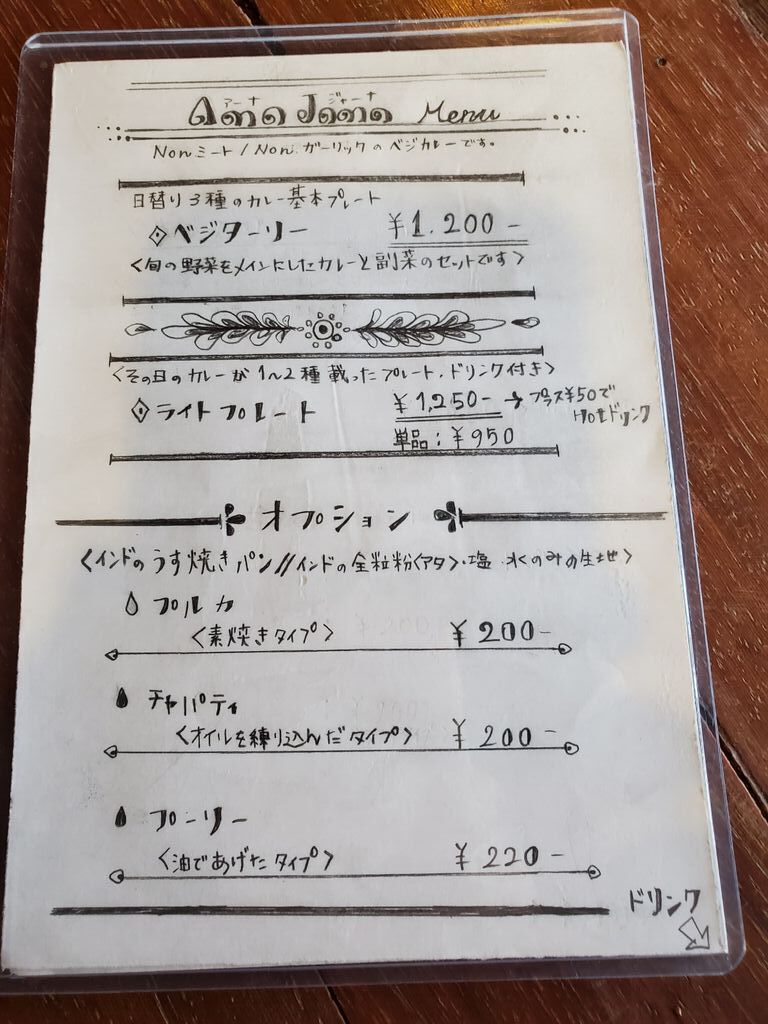 アーナ ジャーナ
Ana Jana Menu
Nonミート / Non.ガーリックのベジカレーです。
日替り3種のカレー基本プレート
ベジターリー ¥1.200-
〈旬の野菜をメインにしたカレーと副菜のセットです〉
〈その日のカレーが1〜2種載ったプレート、ドリンク付き〉
ライトプレート ¥1,250- → プラス¥50で
Hotドリンク
単品:¥950
オプション
〈インドのうす焼きパン//インドの全粒粉〈アタ〉・塩・水のみの生地〉
プルカ
〈素焼きタイプ〉 ¥200-
チャパティ
〈オイルを練り込んだタイプ〉 ¥200-
プーリー
〈油であげたタイプ〉 ¥220-
ドリンク